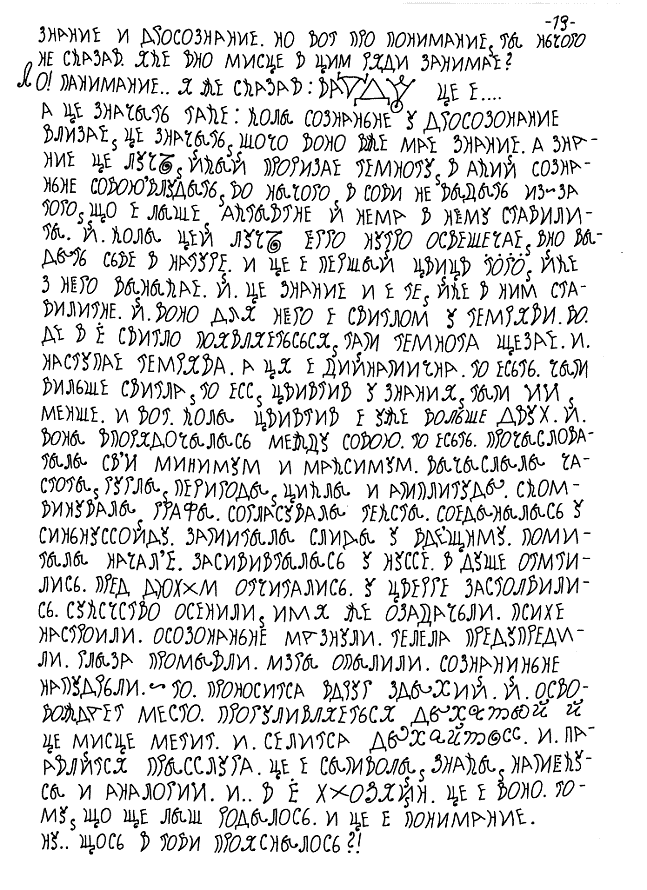 -19-
ЗНАНИЕ И ДРОСОЗНАНИЕ. НО ВОТ ПРО ПОНИМАНИЕ, ТЫ НЫЧОГО
НЕ СКАЗАВ. ЯКЕ ВНО МИСЦЕ В ЦИМ РЯДИ ЗАНИМАЕ?
О! ПАНИМАНИЕ.. Я ЖЕ СКАЗАВ: ЦЕ Е....
А ЦЕ ЗНАЧЫТЬ ТАКЕ: КОЛЫ СОЗНАНЬНЕ У ДРОСОЗОНАНИЕ
ВЛИЗАЕ, ЦЕ ЗНАЧЫТЬ, ЩОЧО ВОНО ВЖЕ МАЕ ЗНАНИЕ. А ЗНА-
НИЕ ЦЕ ЛУЧЬ, ЙКЫЙ ПРОРИЗАЕ ТЕМНОТУ, В АКИЙ СОЗНА-
НЬНЕ СОБОЮ БЛУДЫТЬ, БО НЫЧОГО, В СОБИ НЕ ВЫДЫТЬ ИЗ-ЗА
ТОГО, ЩО Е ЛЫШЕ, АКТЫВТНЕ Й НЕМА В НЁМУ СТАБИЛИ-
ТЫ. Й. КОЛЫ ЦЕЙ ЛУЧЬ ЕГГО НУТРО ОСВЕЩЕЧАЕ, ВНО ВЫ-
ДЫТЬ СЕБЕ В НАТУРЕ. И ЦЕ Е ПЕРШЫЙ ЦВИЦВ ТОГО, ЙКЕ
З НЕГО ВЫНЫКАЕ. Й. ЦЕ ЗНАНИЕ И Е ТЕ, ЙКЕ В НИМ СТА-
БИЛИТНЕ. Й. ВОНО ДЛЯ НЕГО Е СВИТЛОМ У ТЕМРЯВИ. БО.
ДЕ В Ё СВИТЛО ПОЯВЛЯЕТЬСЬСЯ, ТАТИ ТЕМНОТА ЩЕЗАЕ. И.
НАСТУПАЕ ТЕМРЯВА. А ЦЯ Е ДИЙНАМИЧНА. ТО ЕСТЬ. ЧЫТИ
БИЛЬШЕ СВИТЛА, ТО ЕСС, ЦВИВТИВ У ЗНАНИЯ, ТЫТИ ИЙ,
МЕНШЕ. И ВОТ. КОЛЫ ЦВИВТИВ Е УЖЕ БОЛЬШЕ ДВУХ. Й.
ВОНЫ ВПОРЯДОЧЫЛЫСЬ МЕЖДУ СОБОЮ. ТО ЕСТЬ. ПРОЧЫСЛОВА-
ТЫЛЫ СВ'И МИНИМУМ И МАКСИМУМ. ВЫЧЫСЛЫЛЫ ЧА-
СТОТЫ, РУГЛЫ, ПЕРИГОДЫ, ЦИКЛЫ И АТИПЛИТУДЫ. СКОМ-
БИНУВАЛЫ, ГРАФЫ. СОГЛАСУВАЛЫ ТЕКСТЫ. СОЕДЫНЫЛЫСЬ У
СИНЬНУССОЙДУ. ЗАТИТЫЛЫ СЛИДЫ У ВДЕЩНМУ. ПОМИ-
ТЫЛЫ НАЧАЛ'Е. ЗАСИВИВТЫЛЫСЬ У НУССЕ. В ДУШЕ ОТМТИ-
ЛИСЬ. ПРЕД ДУОХХМ ОТЧИТАЛИСЬ. У ЦВЕРГЕ ЗАСТОЛБИЛИ-
СЬ. СУЙСЧСТВО ОСЕНИЛИ, ИМЯ ЖЕ ОЗАДАЧЫЛИ. ПСИХЕ
НАСТРОИЛИ. ОСОЗОНАНЬНЕ МАЗНУЛИ. ТЕЛЕЛА ПРЕДУПРЕДИ-
ЛИ. ГЛЫЗА ПРОМЫВЛИ. МЗГЫ ОПЫЛИЛИ. СОЗНАНИНЬНЕ
НАПУДРЫЛИ. ТО. ПРОНОСИТСА ВДРУГ ЗДЫХИЙ. Й. ОСВО-
БОЖДАЕТ МЕСТО. ПРОГУЛИВЛЯЕТЬСЯ ДЫХАТЫОЙ Й
ЦЕ МИСЦЕ МЕТИТ. И. СЕЛИТСА ДЫХАЙТОСС. И. ПА-
АВЛИТСЯ ПРЫССЛУГА. ЦЕ Е СЫТИВОЛЫ, ЗНАКЫ, НАТИЕКУ-
СЫ И АНАЛОГИИ. И.. В Ё ХХОЗЯЙН. ЦЕ Е ВОНО. ТО-
МУ, ЩО ЩЕ ЛЫШ РОДЫЛОСЬ. И ЦЕ Е ПОНИМАНИЕ.
НУ.. ЩОСЬ В ТОБИ ПРОЯСНЫЛОСЬ?!